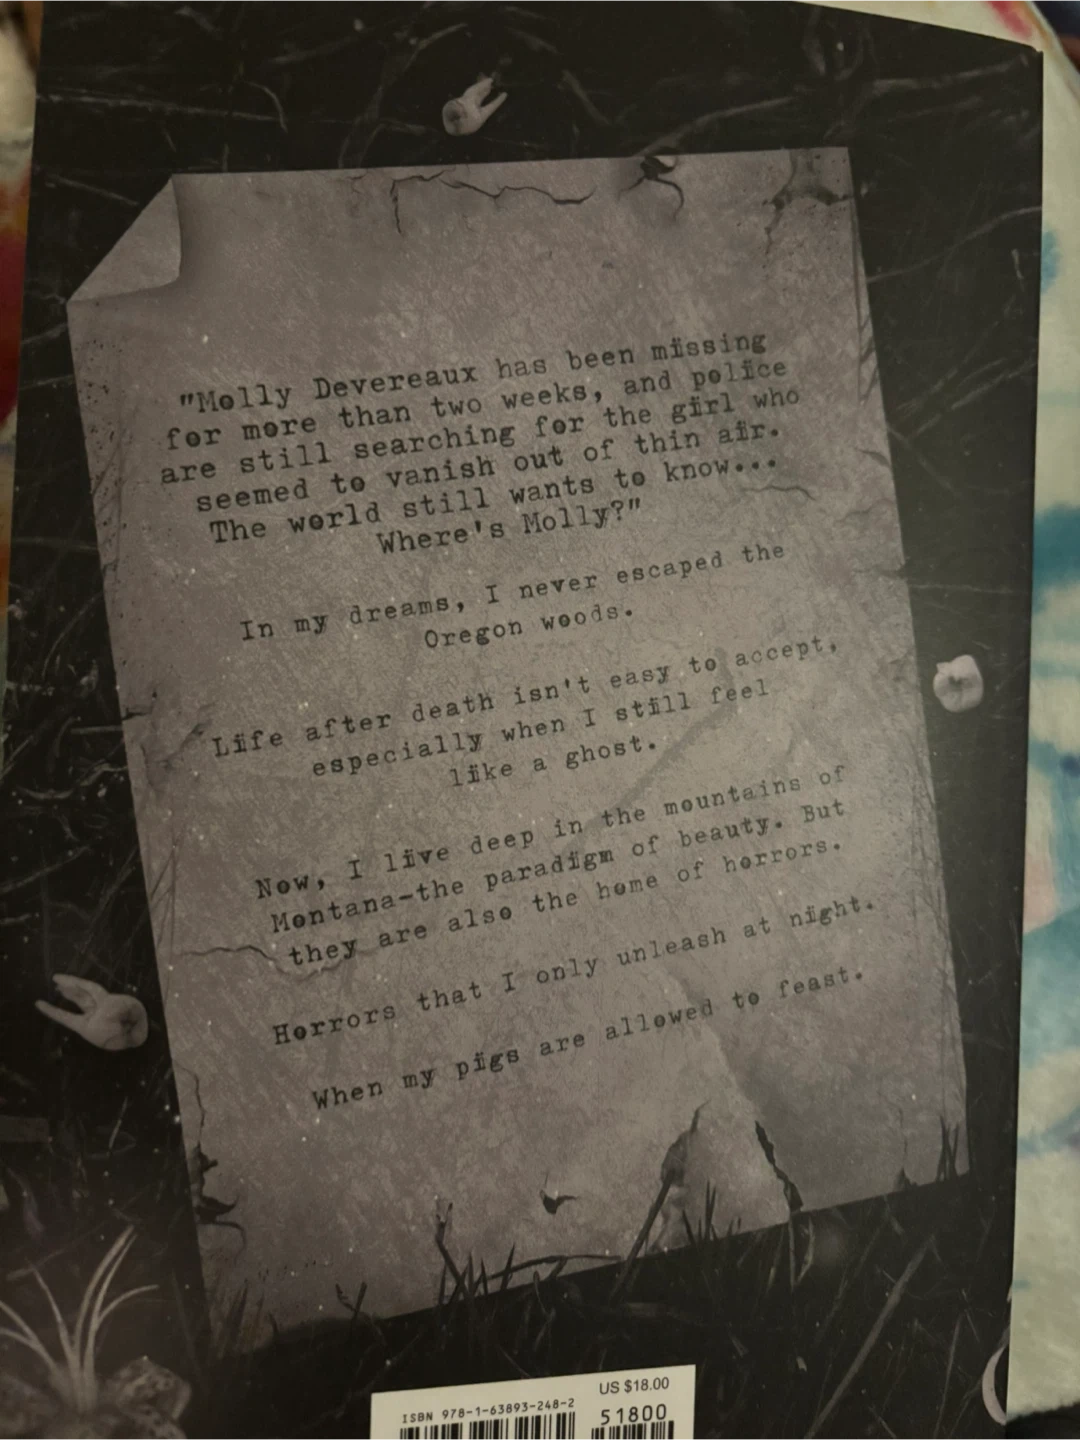 "Molly Devereaux has been missing
for more than two weeks, and police
are still searching for the girl who
seemed to vanish out of thin air.
The world still wants to know...
Where's Molly?"
In my dreams, I never escaped the
Oregon woods.
Life after death isn't easy to accept,
especially when I still feel
like a ghost.
Now, I live deep in the mountains of
Montana-the paradigm of beauty. But
they are also the home of horrors.
Horrors that I only unleash at night.
When my pigs are allowed to feast.
US $18.00
ISBN 978-1-63893-248-2
51800